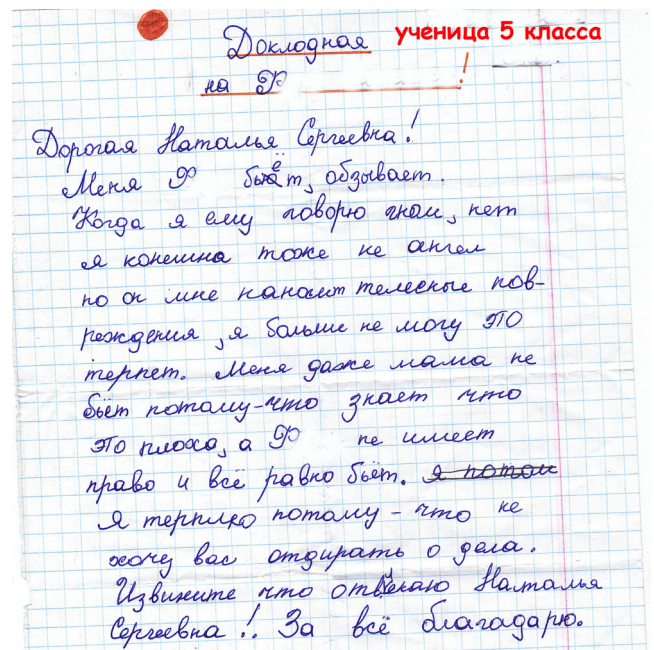 ученица 5 класса
Доклодная
на Ф !
Дорогая Наталья Сергеевна!
Меня Ф бьёт, обзывает.
Когда я ему говорю гном, нет
я конешна тоже не ангел
но он мне наносит телесные пов-
реждения, я больше не могу это
терпет. Меня даже мама не
бьёт потому-что знает что
это плохо, а Ф не имеет
право и всё равно бьёт. я потом
Я терплю потому-что не
хочу вас отдирать о дела.
Извините что отвлекаю Наталья
Сергеевна!. За всё благадарю.